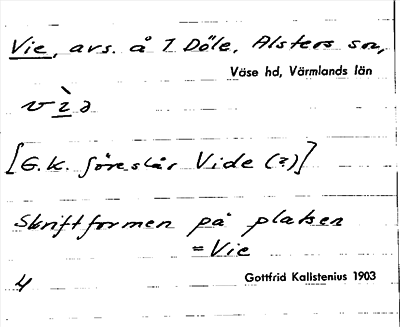 Vie, avs. å 7 Döle, Alsters sn,
Väse hd, Värmlands län
vìə
[G.K. föreslår Vide (?)]
Skriftformen på platsen
= Vie
4
Gottfrid Kallstenius 1903